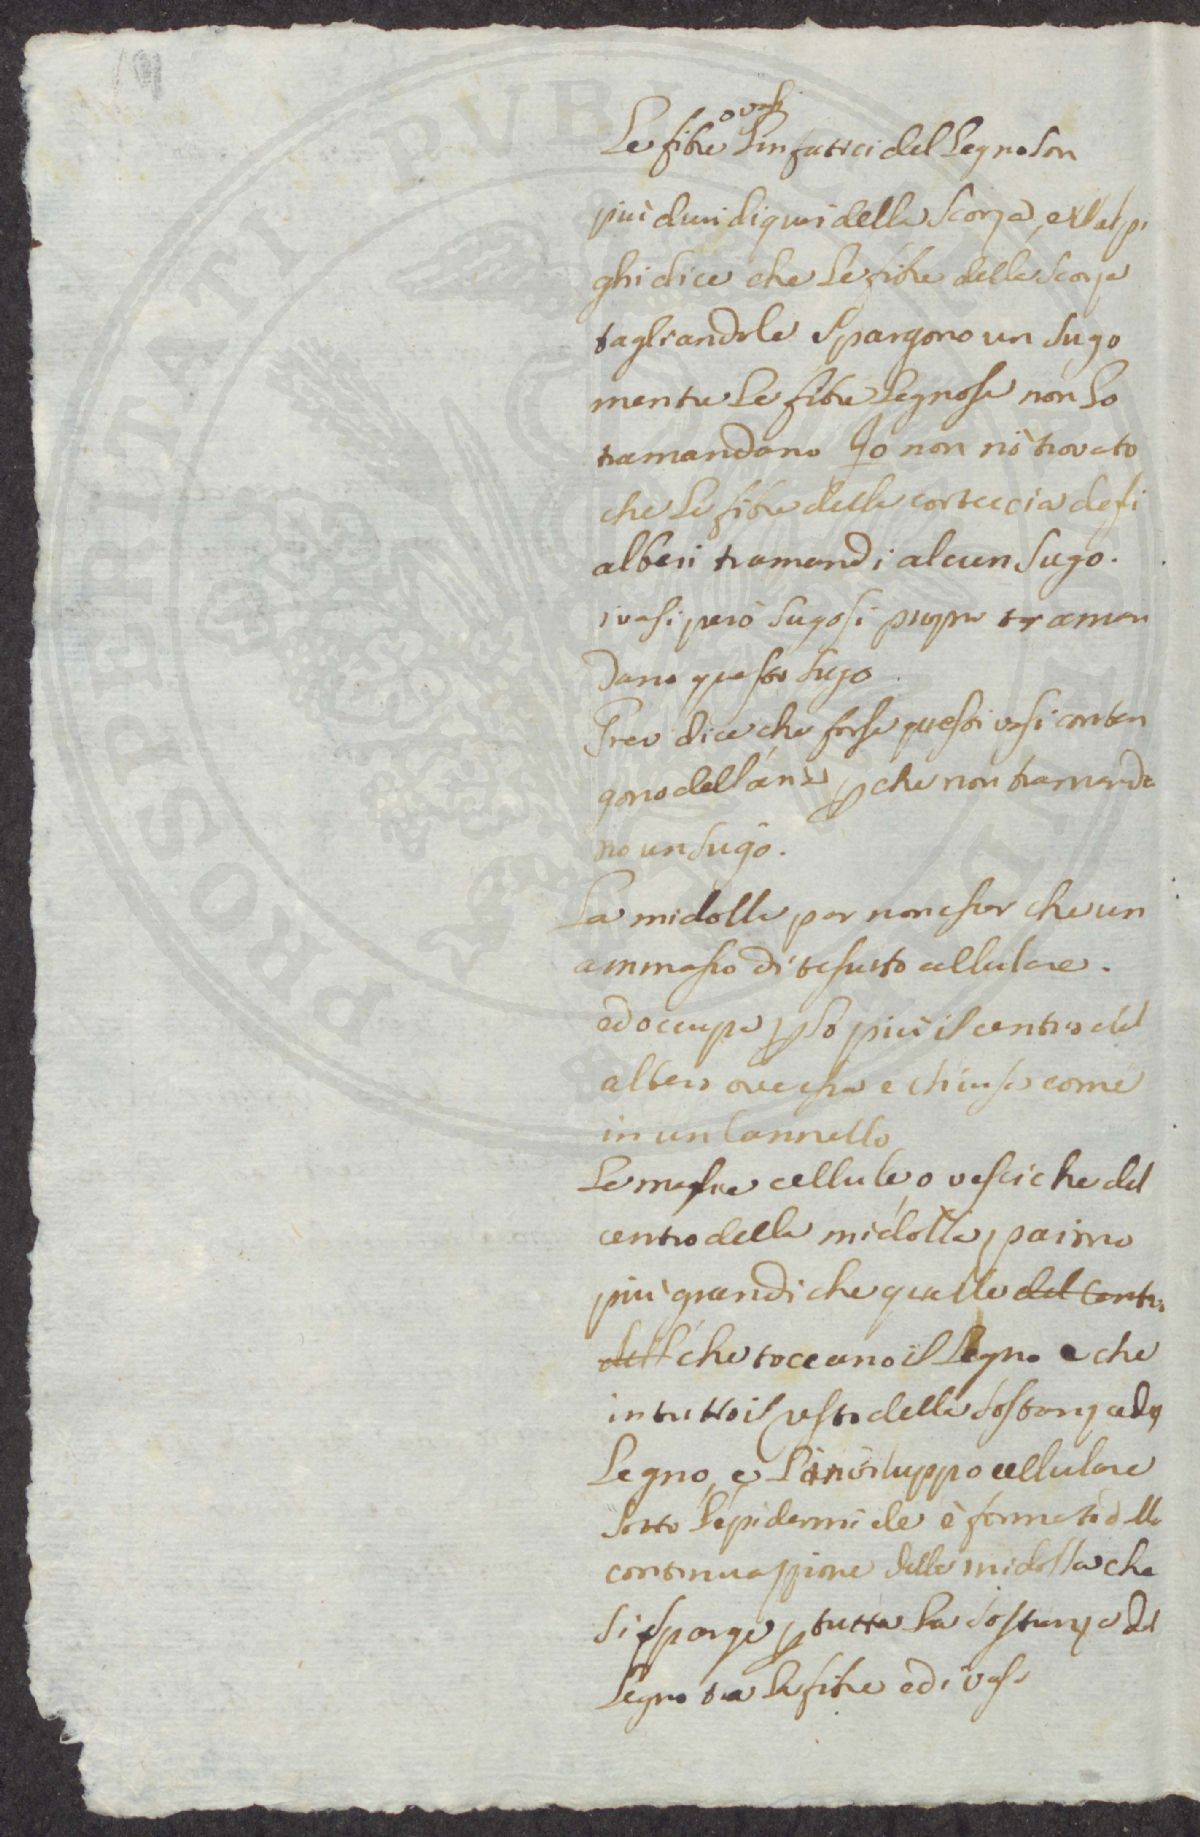 o vasi
Le fibre Linfatici del Legno son
più duri di quei della scorza, e Malpi
ghi dice che Le fibre della scorza
tagliandole spargono un sugo
mentre Le fibre Legnose non Lo
tramandano Io non hò trovato
che Le fibre della corteccia degli
alberi tramandi alcun sugo.
i vasi però sugosi propri traman
dano questo sugo.
Grew dice che forse questi vasi conten
gono dell'aria pche non tramanda
no un sugo.
La midolla par non esser che un
ammasso di tessuto cellulare.
ed occupa p Lo più il centro del
albero ove essa e chiusa come
in un Cannello
Le maglie cellule o vesciche del
centro della midolla paiono
più grandi che quelle del Centro
dell' che toccano il Legno e che
in tutto il resto della sostanza del
Legno, e L'inviluppo cellulare
sotto L'epidermide è formato dlla
continuazzione della midolla che
si sparge p tutta La sostanza del
Legno tra Le fibre ed i vasi
PROSPERITATI PVBLICAE